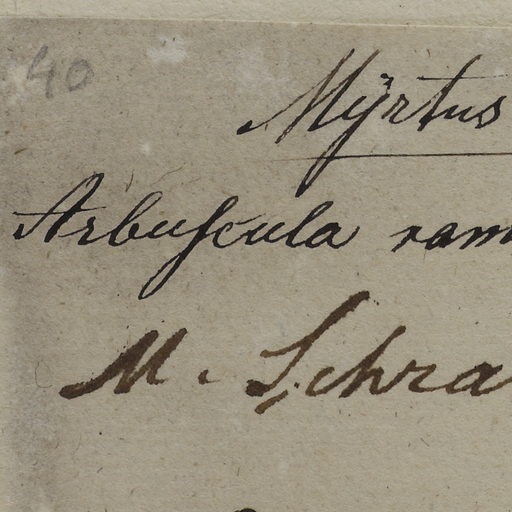 40
Mÿrtus
Arbuscula ram
M. Schra